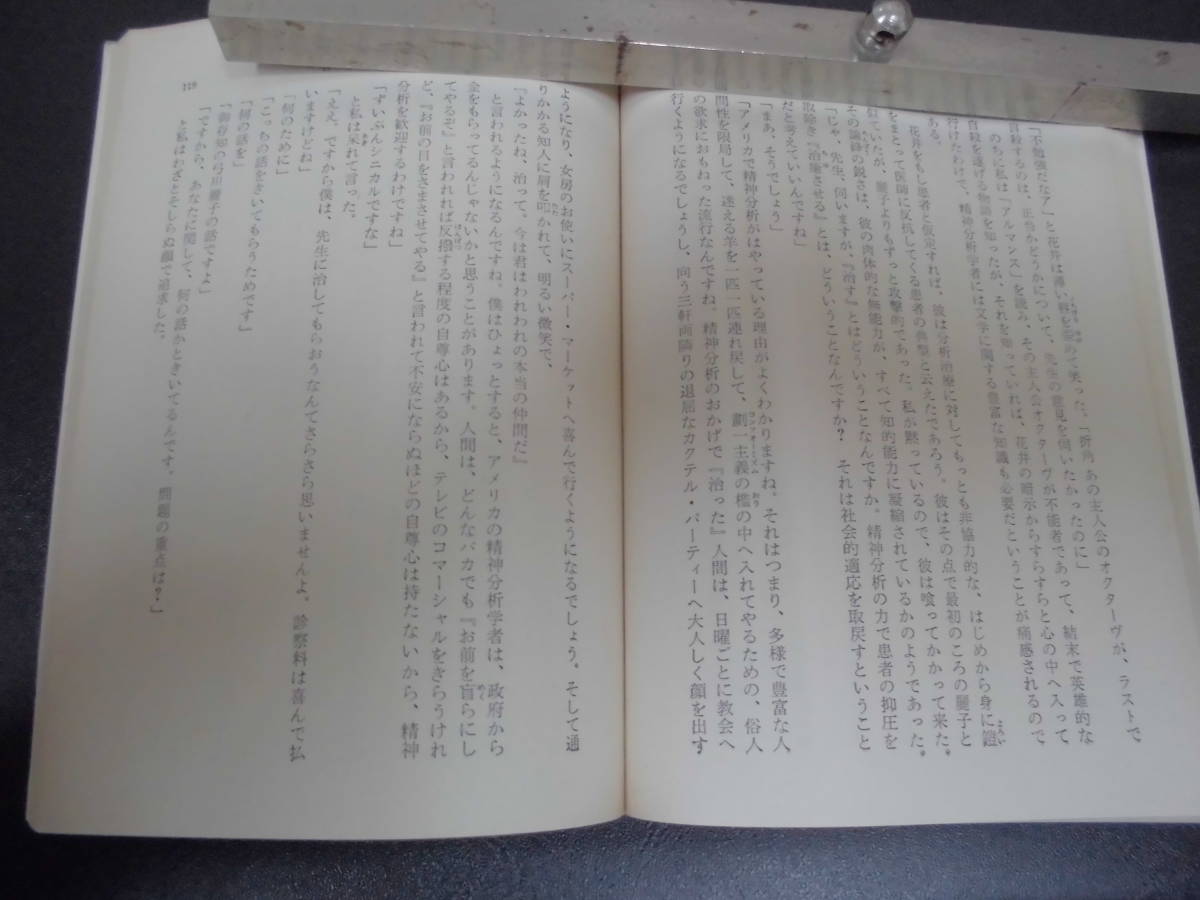 「不勉強だなア」と花井は薄い唇を歪めて笑った。「折角 あの主人公のオクターヴが、ラストで
自殺するのは、正当かどうかについて、先生の意見を伺いたかったのに」
のちに私は『アルマンス』を読み、その主人公オクターヴが不能者であって、結末で英雄的な
自殺を遂げる物語を知ったが、それを知っていれば、花井の暗示からすらすらと心の中へ入って
行けたわけで、精神分析学者には文学に関する豊富な知識も必要だということが痛感されるので
ある。
花井をもし患者と仮定すれば、彼は分析治療に対してもっとも非協力的な、はじめから身に鎧
をまとって医師に反抗してくる患者の典型と云えたであろう。彼はその点で最初のころの麗子と
似ていたが、麗子よりもずっと攻撃的であった。私が黙っているので、彼は喰ってかかって来た。
その論鋒の鋭さは、彼の肉体的な無能力が、すべて知的能力に凝縮されているかのようであった。
「じゃ、先生、伺いますが、『治す』とはどういうことなんですか。精神分析の力で患者の抑圧を
取除き『治癒させる』とは、どういうことなんですか? それは社会的適応を取戻すということ
だと考えていいんですね」
「まあ、そうでしょう」
「アメリカで精神分析がはやっている理由がよくわかりますね。それはつまり、多様で豊富な人
間性を限局して、迷える羊を一匹一匹連れ戻して、劃一主義の檻の中へ入れてやるための、俗人
の欲求におもねった流行なんですね。精神分析のおかげで『治った』人間は、日曜ごとに教会へ
行くようになるでしょうし、向う三軒両隣りの退屈なカクテル・パーティーへ大人しく顔を出す
ようになり、女房のお使いにスーパー・マーケットへ喜んで行くようになるでしょう。そして通
りかかる知人に肩を叩かれて、明るい微笑で、
『よかったね、治って。今は君はわれわれの本当の仲間だ』
と言われるようになるんですね。僕はひょっとすると、アメリカの精神分析学者は、政府から
金をもらってるんじゃないかと思うことがあります。人間は、どんなバカでも『お前を盲らにし
てやるぞ』と言われれば反撥する程度の自尊心はあるから、テレビのコマーシャルをきらうけれ
ど、『お前の目をさまさせてやる』と言われて不安にならぬほどの自尊心は持たないから、精神
分析を歓迎するわけですね」
「ずいぶんシニカルですな」
と私は呆れて言った。
「ええ、ですから僕は、先生に治してもらおうなんてさらさら思いませんよ。診察料は喜んで払
いますけどね」
「何のために」
「こっちの話をきいてもらうためです」
「何の話を」
「御存知の弓川麗子の話ですよ」
「ですから、あなたに関して、何の話かときいてるんです。問題の重点は?」
と私はわざとそしらぬ顔で追求した。
119